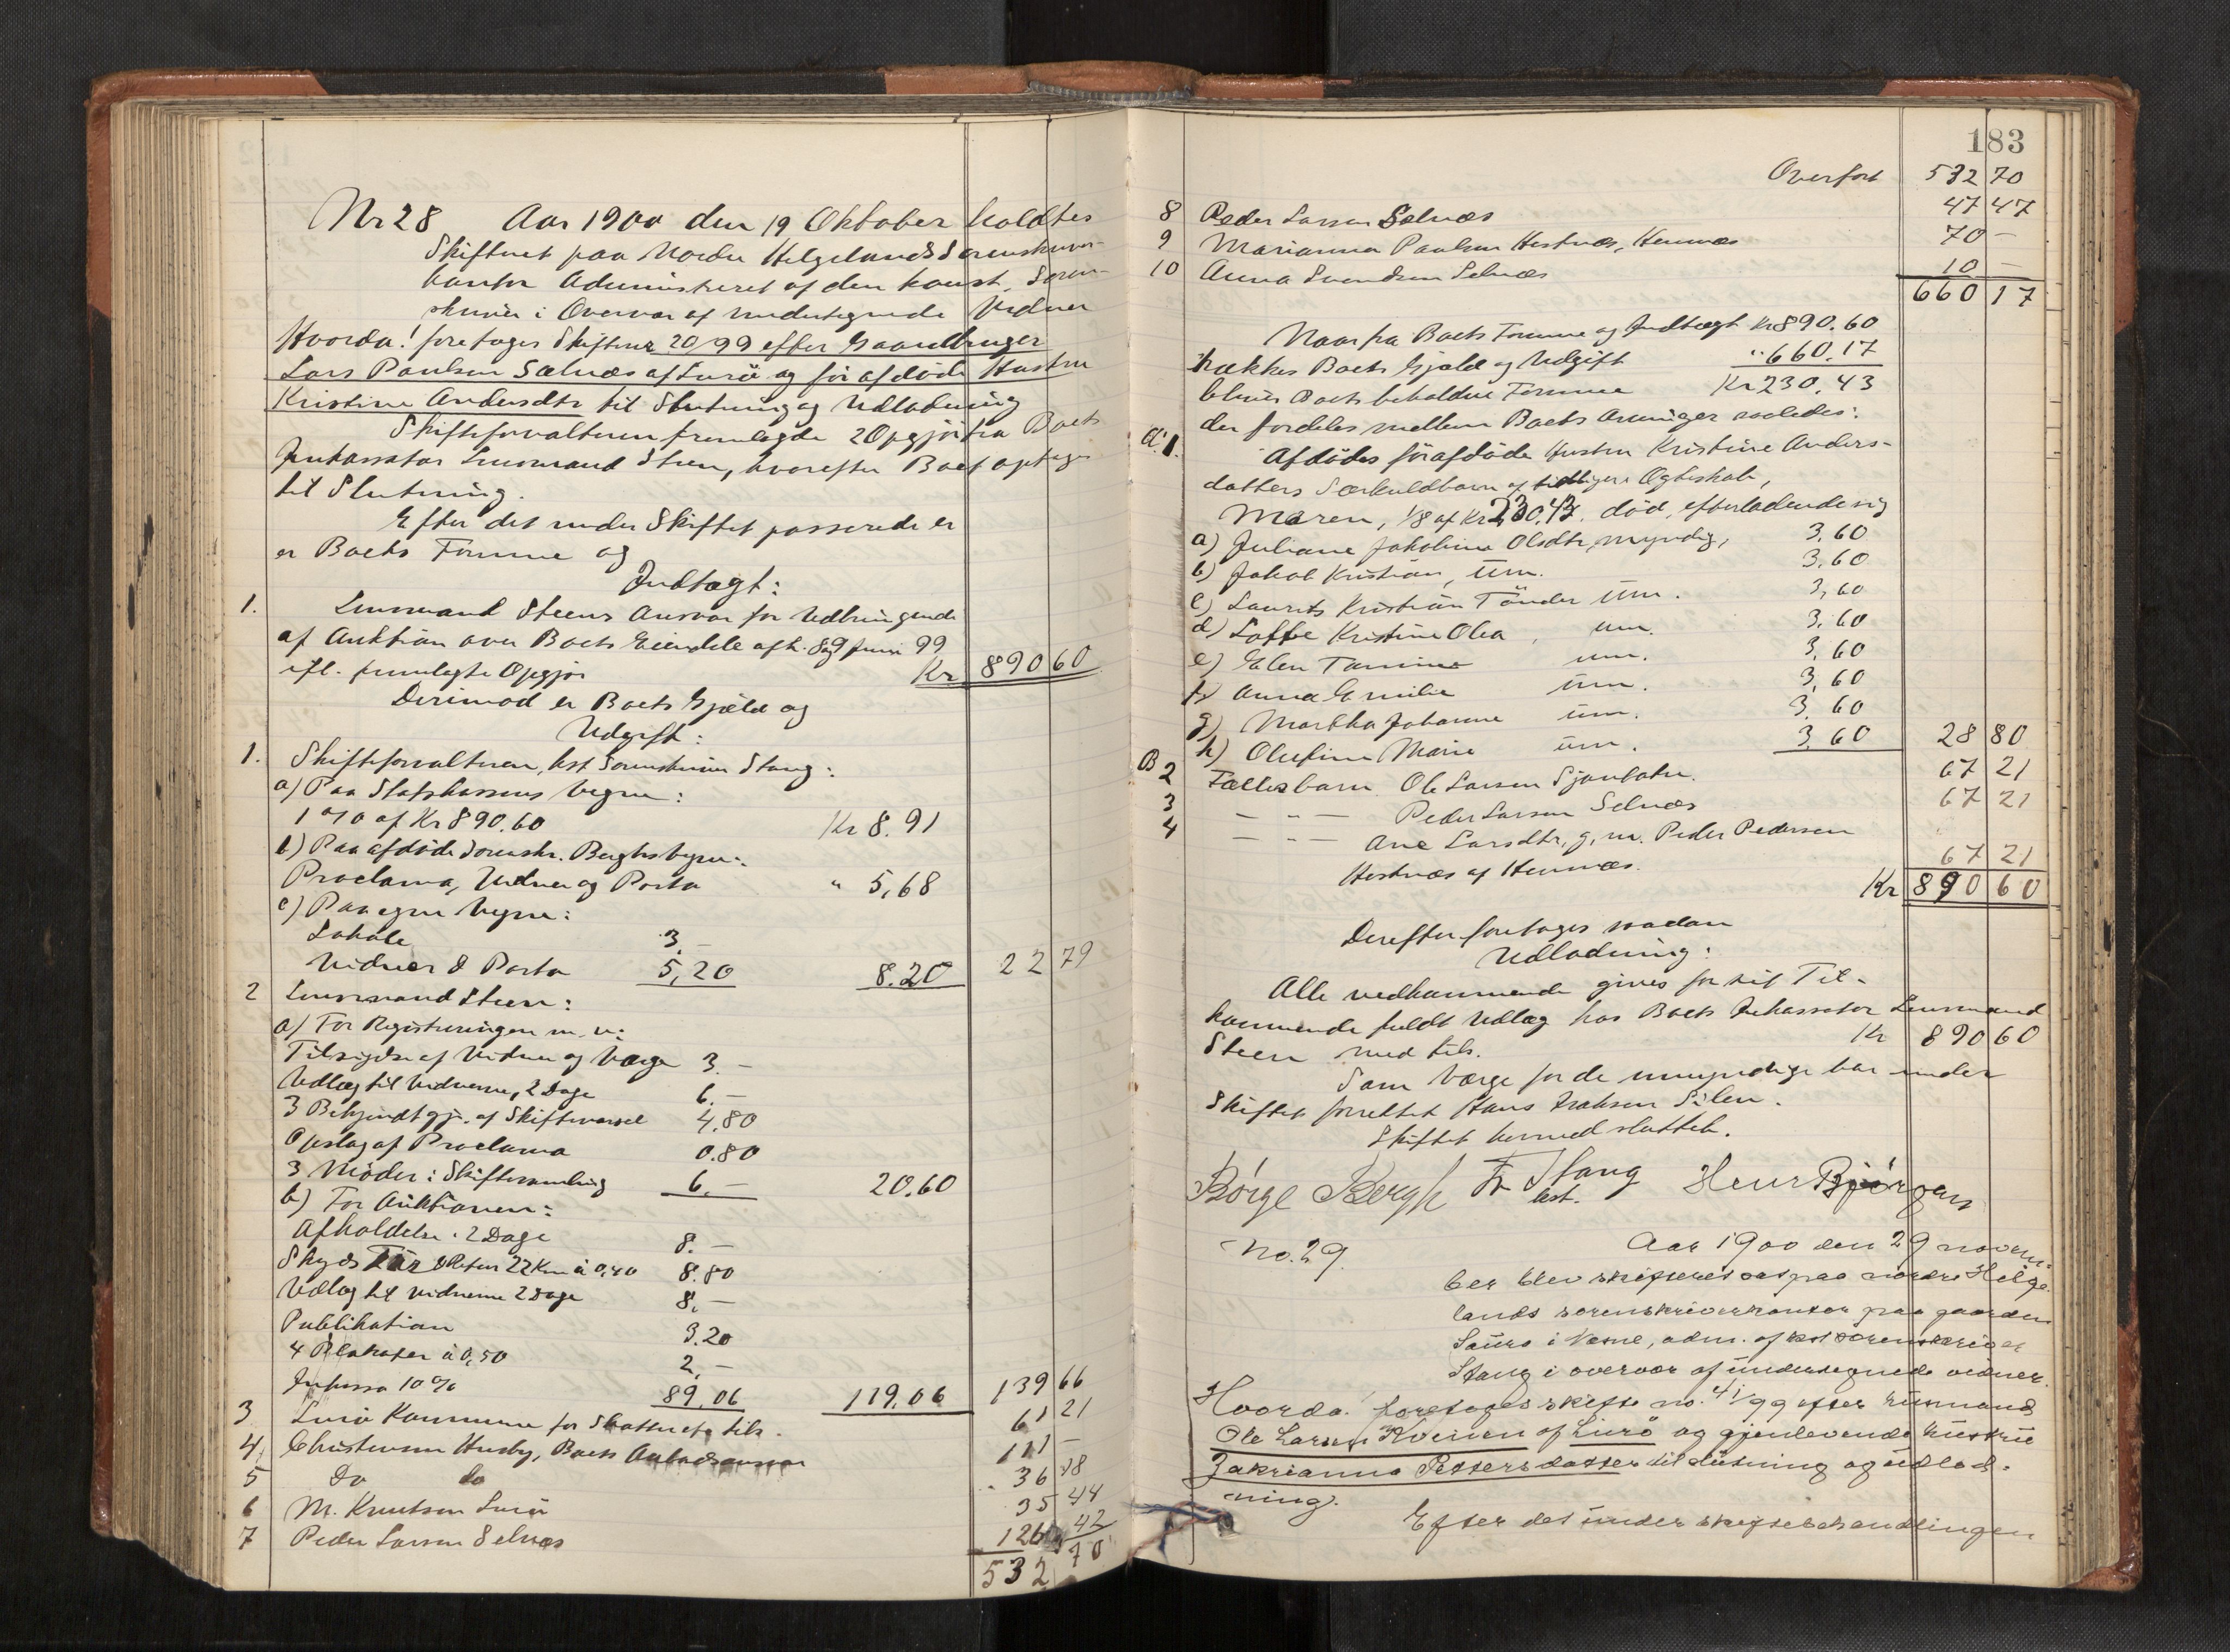 Nr 28 Aar 1900 den 19 Oktober holdtes
Skifteret paa Nordre Helgelands Sorenskriver-
kontor Administreret af den konst. Soren-
skriver i Overvær af undertegnede Vidner
Hvorda! foretages Skiftene 20/99 efter Gaardbruger
Lars Paulsen Selnæs af Lurö og för afdöde Hustru
Kristine Andersdtr til Slutning og Udlodning
Skifteforvalteren fremlagde 2 Opgjör fra Boets
Inkassator Lensmand Steen, hvorefter Boet optages
til Slutning.
Efter det under Skiftet passerede er
er Boets Formue og
Indtægt:
1. Lensmand Steens Ansvar for Udbringende
af Auktion over Boets Eiendele afh. 8 og 9 Juni 99
ifl. fremlagte Opgjör Kr 890 60
Derimod er Boets Gjæld og
Udgift:
1. Skifteforvalteren, kst Sorenskriver Stang:
a) Paa Statskassens Vegne:
1 % af Kr 890.60 Kr 8.91
b) Paa afdöde Sorenskr. Berghs Vegne:
Proclama, Vidner og Porto " 5,68
c) Paa egne Vegne:
Lokale 3.–
Vidner & Porto 5,20 8.20 22 79
2 Lensmand Steen:
a) For Registreringen m. v:
Tilsigelse af Vidner og Værge 3.–
Udlæg til Vidnerne, 2 Dage 6.–
3 Bekjendtgj. af Skiftevarsel 4,80
Opslag af Proclama 0.80
3 Möder i Skiftesamling 6.– 20.60
b) For Auktionen:
Afholdelse 2 Dage 8.–
Skyds Tur & Retur 22 Km à 0,40 8.80
Udlæg til Vidnerne 2 Dage 8.–
Publikation 3.20
4 Plakater à 0,50 2,–
Inkasso 10 % 89,06 119,06 139 66
3 Lurö Kommune for Skatter efter tils. 61 21
4, Christensen Husby, Boets 111 –
5 Do do 36 18
6 M. Knutsen Lurö 35 44
7 Peder Larsen Selnæs 126 42
532 70
183
Overfört 532 70
8 Peder Larsen Selnæs 47 47
9 Marianna Paulsen Hestnæs, Hemnæs 70 –
10 Anna Svendsen Selnæs 10 –
660 17
Naar fra Boets Formue og Indtægt Kr 890.60
trækkes Boets Gjæld og Udgift " 660.17
bliver Boets beholdne Formue Kr 230,43
der fordeles mellem Boets Arvinger saaledes:
A. 1. Afdödes förafdöde Hustru Kristine Anders-
datters Særkuldbarn af tidligere Ægteskab,
Maren, 1/8 af Kr 230,43. död, efterladende sig
a) Juliane Jakobine Olsdtr, myndig, 3,60
b) Jakob Kristian, um. 3.60
c) Laurits Kristian Tönder um. 3,60
d) Loffe Kristine Olea, um. 3.60
e) Elen Tamine um. 3,60
f) Anna Emilie um. 3,60
g) Martha Johanne um. 3,60
h) Olufine Marie um. 3,60 28 80
B 2 Fællesbarn Ole Larsen Sjonbotn. 67 21
3 – " – Peder Larsen Selnæs 67 21
4 – " – Ane Larsdtr, g. m. Peder Pedersen
Hestnæs af Hemnæs. 67 21
Kr 890 60
Derefter foretages saadan
Udlodning:
Alle vedkommende gives for sit Til-
kommende fuldt Udlæg hos Boets Inkassator Lensmand
Steen med tils. Kr 890 60
Som Værge for de umyndige har under
Skiftet forrettet Hans Isaksen Silen.
Skiftet hermed sluttet.
Börge Bergh Fr Stang Henr Bjørgens
kst.
No. 29. Aar 1900 den 29 novem-
ber blev skifteret sat paa nordre Helge-
lands sorenskriverkontor paa gaarden
Saura i Nesne, adm. af kst sorenskriver
Stang i overvær af undertegnede vidner.
Hvorda! foretages skifte no. 41/99 efter rusmand
Ole Larsen Kvernen af Lurö og gjenlevende hustru
Zakrianna Pettersdatter til slutning og udlod-
ning.
Efter det under skiftebehandlingen